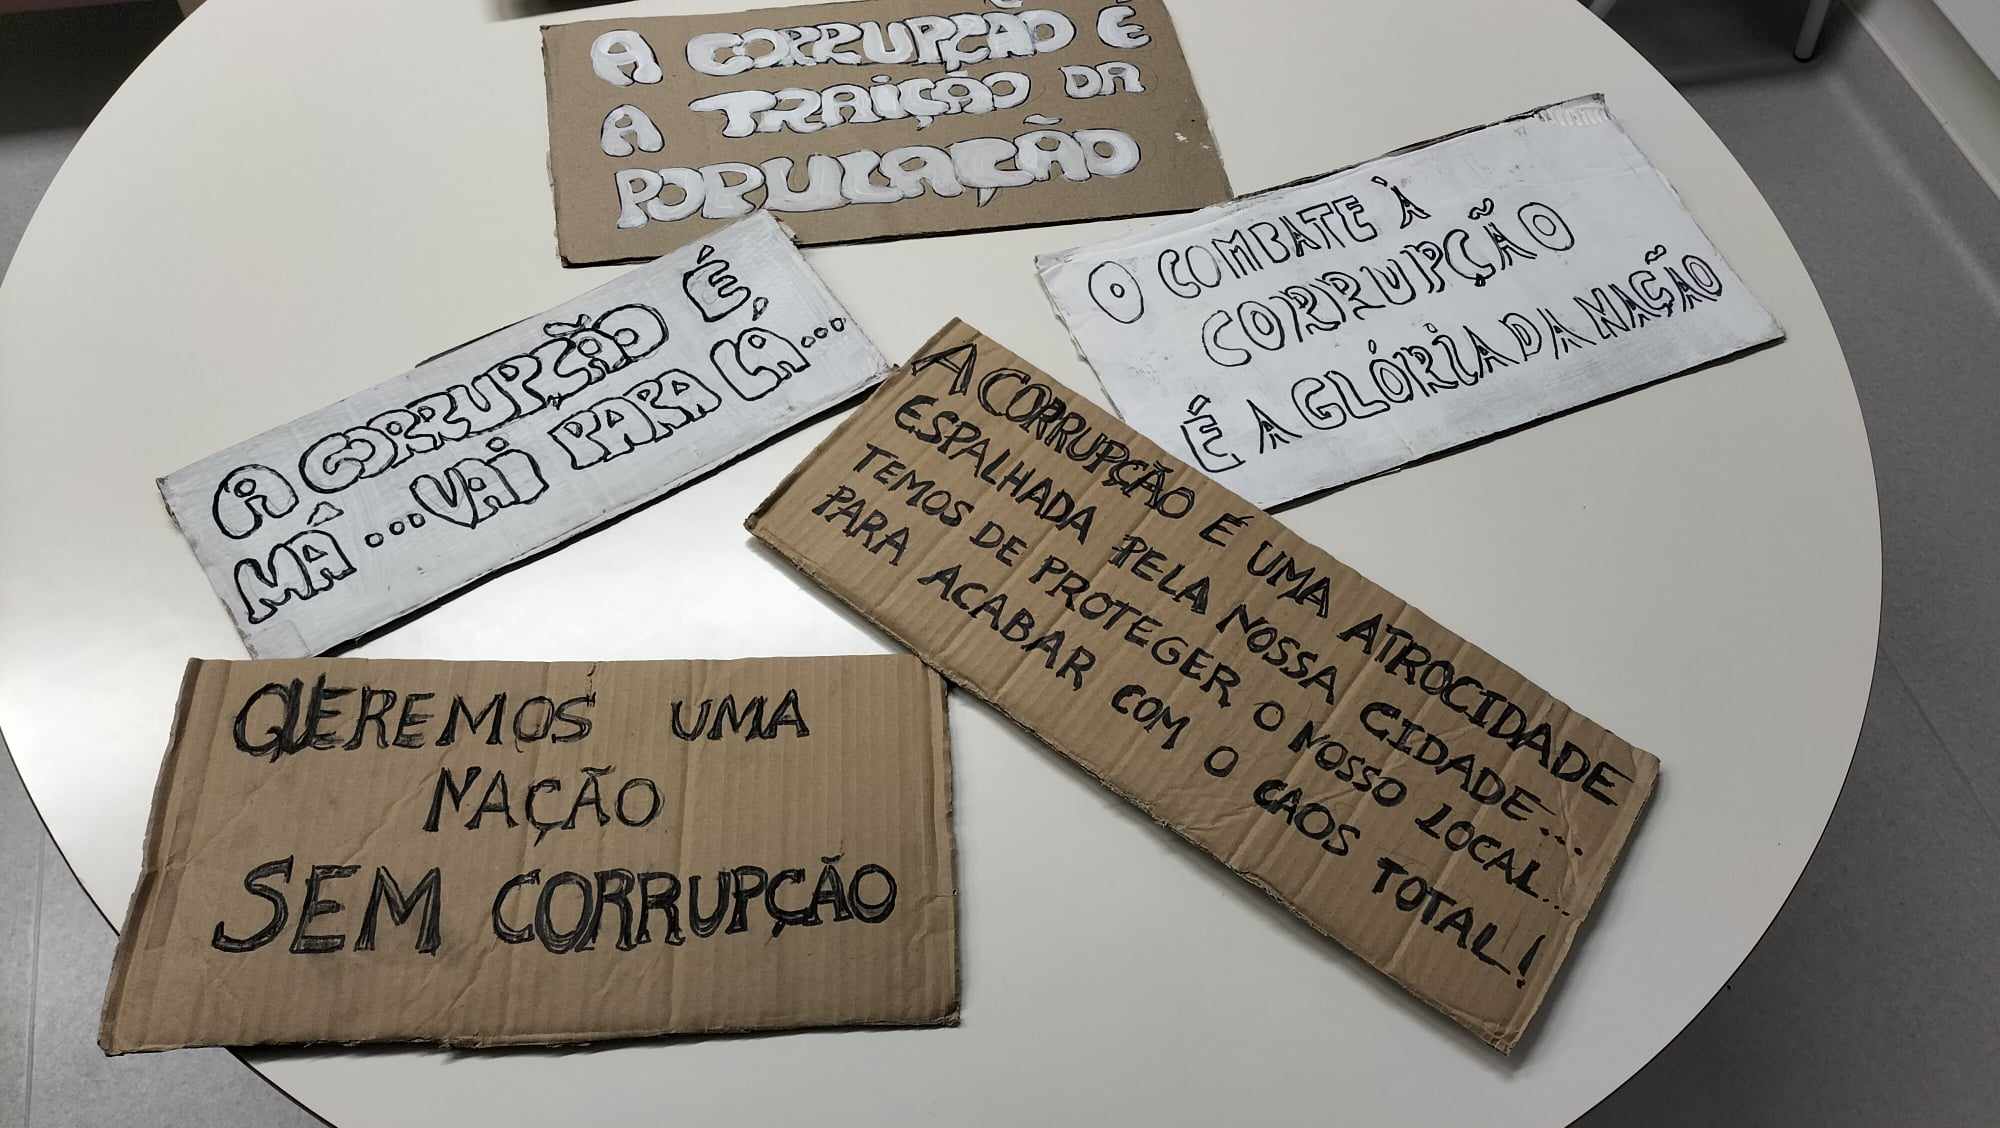 A CORRUPÇÃO É
A TRAIÇÃO DA
POPULAÇÃO
O COMBATE À
CORRUPÇÃO
É A GLÓRIA DA NAÇÃO
A CORRUPÇÃO É,
MÁ...VAI PARA LÁ...
A CORRUPÇÃO É UMA ATROCIDADE
ESPALHADA PELA NOSSA CIDADE...
TEMOS DE PROTEGER O NOSSO LOCAL...
PARA ACABAR COM O CAOS TOTAL!
QUEREMOS UMA
NAÇÃO
SEM CORRUPÇÃO